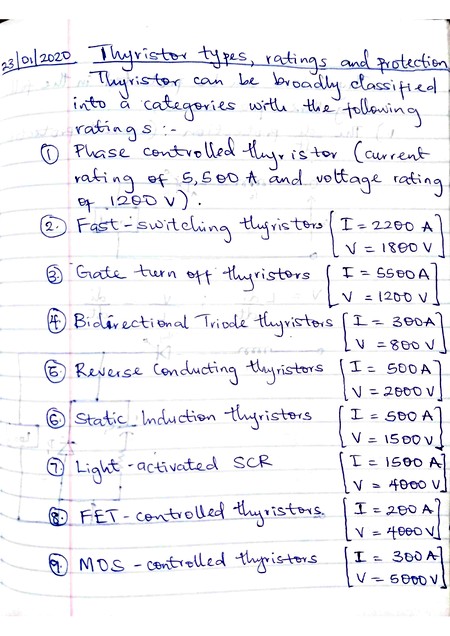 23/01/2020 Thyristor types, ratings and protection
Thyristor can be broadly classified
into a categories with the following
ratings :-
① Phase controlled thyristor (current
rating of 5,500 A and voltage rating
of 1200 V).
②. Fast-switching thyristors [I = 2200 A
V = 1800 V]
③ Gate turn off thyristors [I = 5500 A
V = 1200 V]
④ Bidirectional Triode thyristors [I = 300A
V = 800 V]
⑤ Reverse Conducting thyristors [I = 500 A
V = 2000 V]
⑥ Static Induction thyristors [I = 500 A
V = 1500 V]
⑦ Light-activated SCR [I = 1500 A
V = 4000 V]
⑧. FET-controlled thyristors. [I = 200 A
V = 4000 V]
⑨. MOS-controlled thyristors [I = 300 A
V = 5000 V]